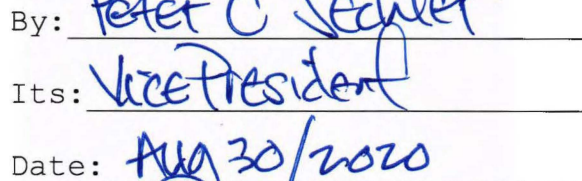 By: Peter C
Its: Vice President
Date: Aug 30/2020